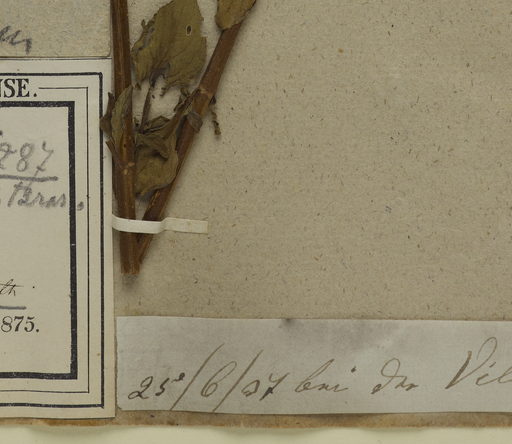 NSE.
287
Bras.
th.
875.
25e/6/37 bei der Vil